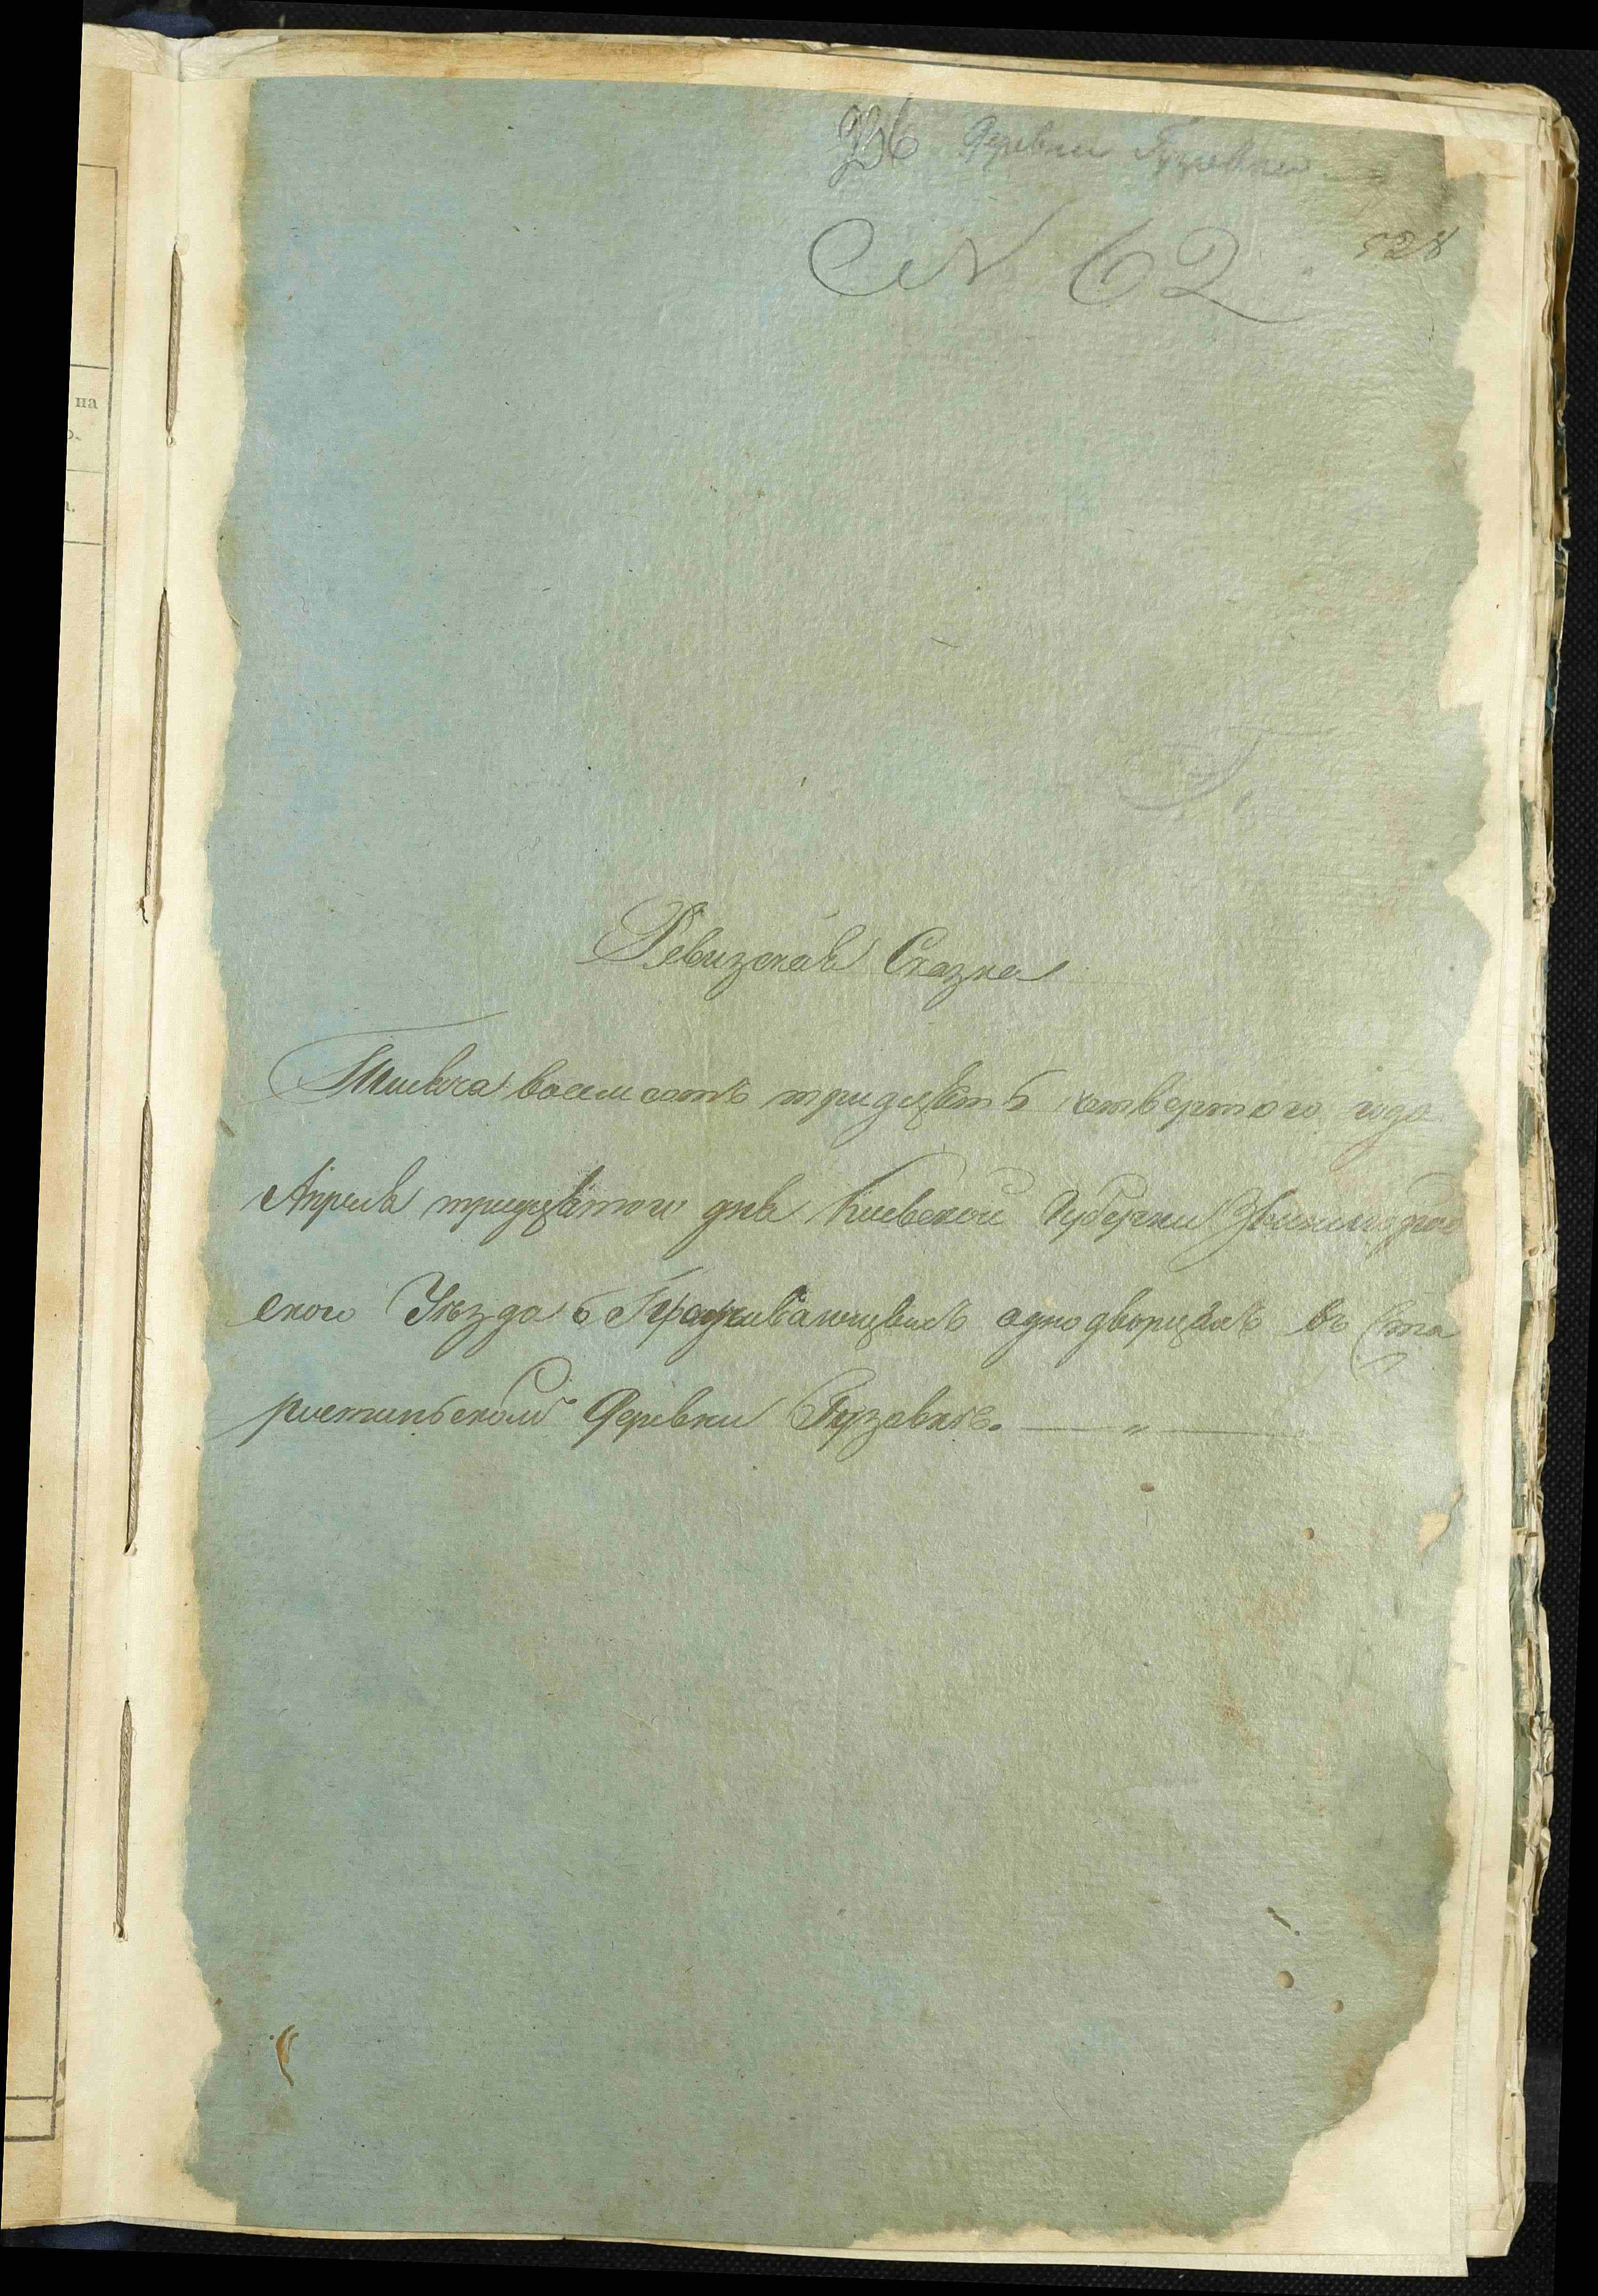 Деревни Гузовки
528
N 62
Ревизская Сказка
Тысяча восемсотъ тридцять четвертого года
Апреля тридцятого дня Киевской Губернии Звенигород
ского Уезда о Проживающихъ однодворцахъ въ Ста
ростинской Деревни Гузовке.
на